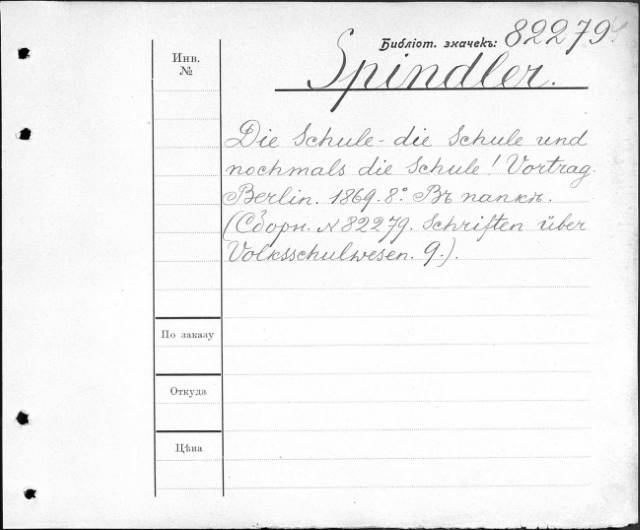 Библіот. значекъ: 82279.
Инв.
№
Spindler.
Die Schule - die Schule und
nochmals die Schule! Vortrag.
Berlin. 1869. 8.° Въ папкѣ.
(Сборн. № 82279. Schriften über
Volksschulwesen. 9.).
По заказу
Откуда
Цѣна